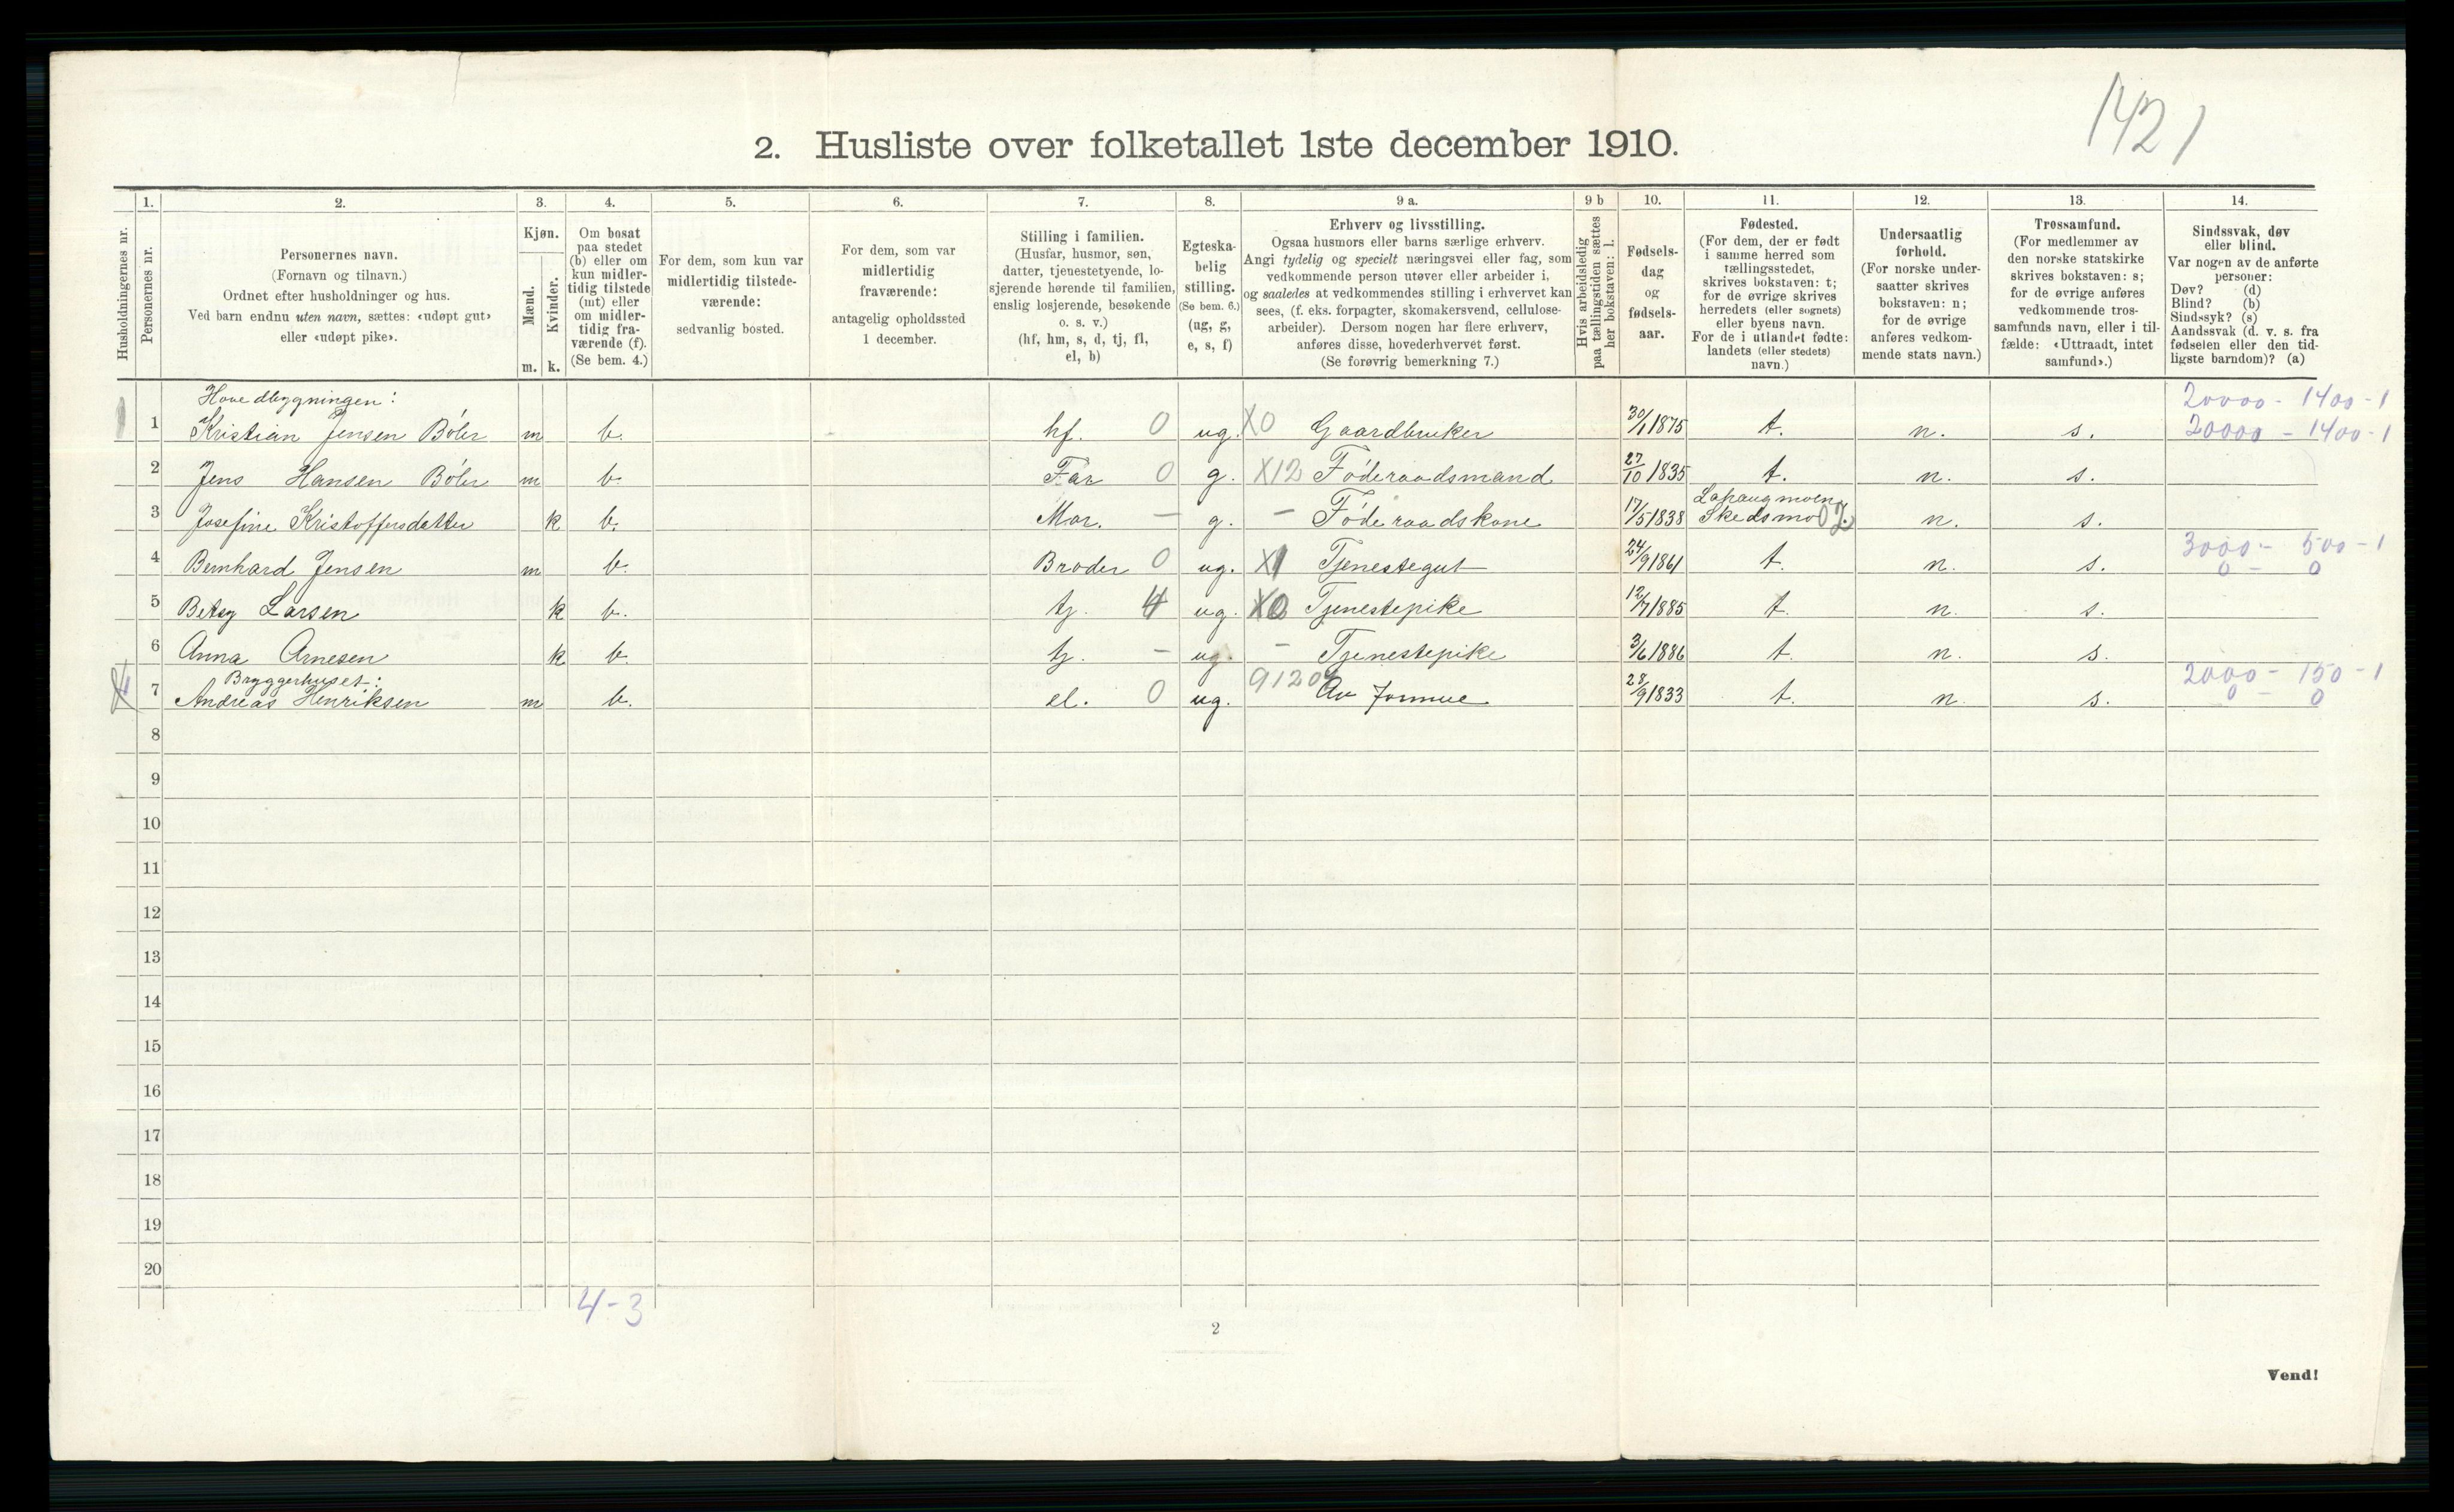 1421
2. Husliste over folketallet 1ste december 1910.
1. 2. 3. 4. 5. 6. 7. 8. 9 a. 9 b 10. 11. 12. 13. 14.
Husholdningernes nr.
Personernes nr.
Personernes navn.
(Fornavn og tilnavn.)
Ordnet efter husholdninger og hus.
Ved barn endnu uten navn, sættes: «udøpt gut»
eller «udøpt pike».
Kjøn.
Mænd.
Kvinder.
m. k.
Om bosat
paa stedet
(b) eller om
kun midler-
tidig tilstede
(mt) eller
om midler-
tidig fra-
værende (f).
(Se bem. 4.)
For dem, som kun var
midlertidig tilstede-
værende:
sedvanlig bosted.
For dem, som var
midlertidig
fraværende:
antagelig opholdssted
1 december.
Stilling i familien.
(Husfar, husmor, søn,
datter, tjenestetyende, lo-
sjerende hørende til familien,
enslig losjerende, besøkende
o. s. v.)
(hf, hm, s, d, tj, fl,
el, b)
Egteska-
belig
stilling.
(Se bem. 6.)
(ug, g,
e, s, f)
Erhverv og livsstilling.
Ogsaa husmors eller barns særlige erhverv.
Angi tydelig og specielt næringsvei eller fag, som
vedkommende person utøver eller arbeider i,
og saaledes at vedkommendes stilling i erhvervet kan
sees, (f. eks. forpagter, skomakersvend, cellulose-
arbeider). Dersom nogen har flere erhverv,
anføres disse, hovederhvervet først.
(Se forøvrig bemerkning 7.)
Hvis arbeidsledig
paa tællingstiden sættes
her bokstaven: l.
Fødsels-
dag
og
fødsels-
aar.
Fødested.
(For dem, der er født
i samme herred som
tællingsstedet,
skrives bokstaven: t;
for de øvrige skrives
herredets (eller sognets)
eller byens navn.
For de i utlandet fødte:
landets (eller stedets)
navn.)
Undersaatlig
forhold.
(For norske under-
saatter skrives
bokstaven: n;
for de øvrige
anføres vedkom-
mende stats navn.)
Trossamfund.
(For medlemmer av
den norske statskirke
skrives bokstaven: s;
for de øvrige anføres
vedkommende tros-
samfunds navn, eller i til-
fælde: «Uttraadt, intet
samfund».)
Sindssvak, døv
eller blind.
Var nogen av de anførte
personer:
Døv? (d)
Blind? (b)
Sindssyk? (s)
Aandssvak (d. v. s. fra
fødselen eller den tid-
ligste barndom)? (a)
Hovedbygningen: 20000 - 1400 - 1
1 Kristian Jensen Böler m b. hf. 0 ug. X0 Gaardbruker 30/1 1875 t. n. s. 20000 - 1400 - 1
2 Jens Hansen Böler m b. Far 0 g. X12 Föderaadsmand 27/10 1835 t. n. s.
3 Josefine Kristoffersdatter k b. Mor. - g. - Föderaadskone 17/5 1838 Skedsmo n. s.
3000 - 500 - 1
4 Bernhard Jensen m b. Broder 0 ug. X1 Tjenestegut 24/9 1861 t. n. s. 0 - 0
5 Betsy Larsen k b. tj. 4 ug. Tjenestepike 12/7 1885 t. n. s.
6 Anna Arnesen k b. tj. - ug. - Tjenestepike 3/6 1886 t. n. s.
Bryggerhuset: 9120 2000 - 150 - 1
7 Andreas Henriksen m b. el. 0 ug. Av formue 28/9 1833 t. n. s. 0 - 0
8
9
10
11
12
13
14
15
16
17
18
19
20
4-3
2
Vend!